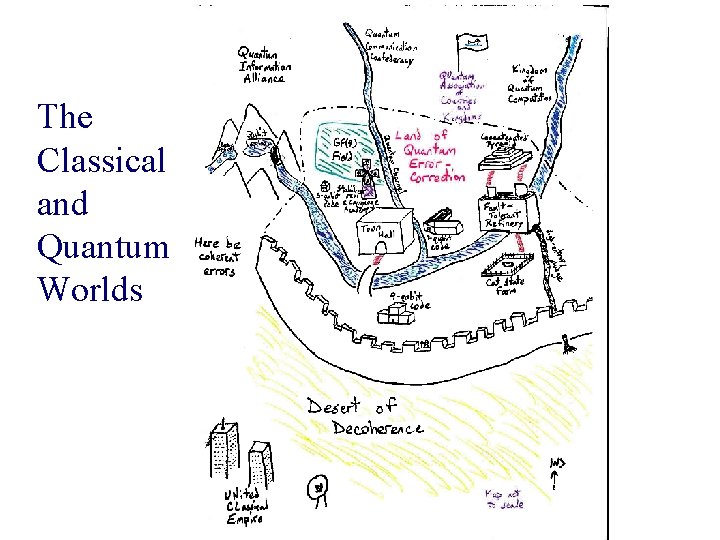 The
Classical
and
Quantum
Worlds
Quantum
Information
Alliance
Quantum
Communication
Confederacy
Quantum
Association
of
Counties
and
Kingdoms
Kingdom
of
Quantum
Computation
GF(4)
Field
Land of
Quantum
Error-
Correction
Concatenated
Town
Hall
code
Fault-
Tolerant
Refinery
Here be
coherent
errors
Cat State
Farm
9-qubit
code
Desert of
Decoherence
United
Classical
Empire
Map not
to scale